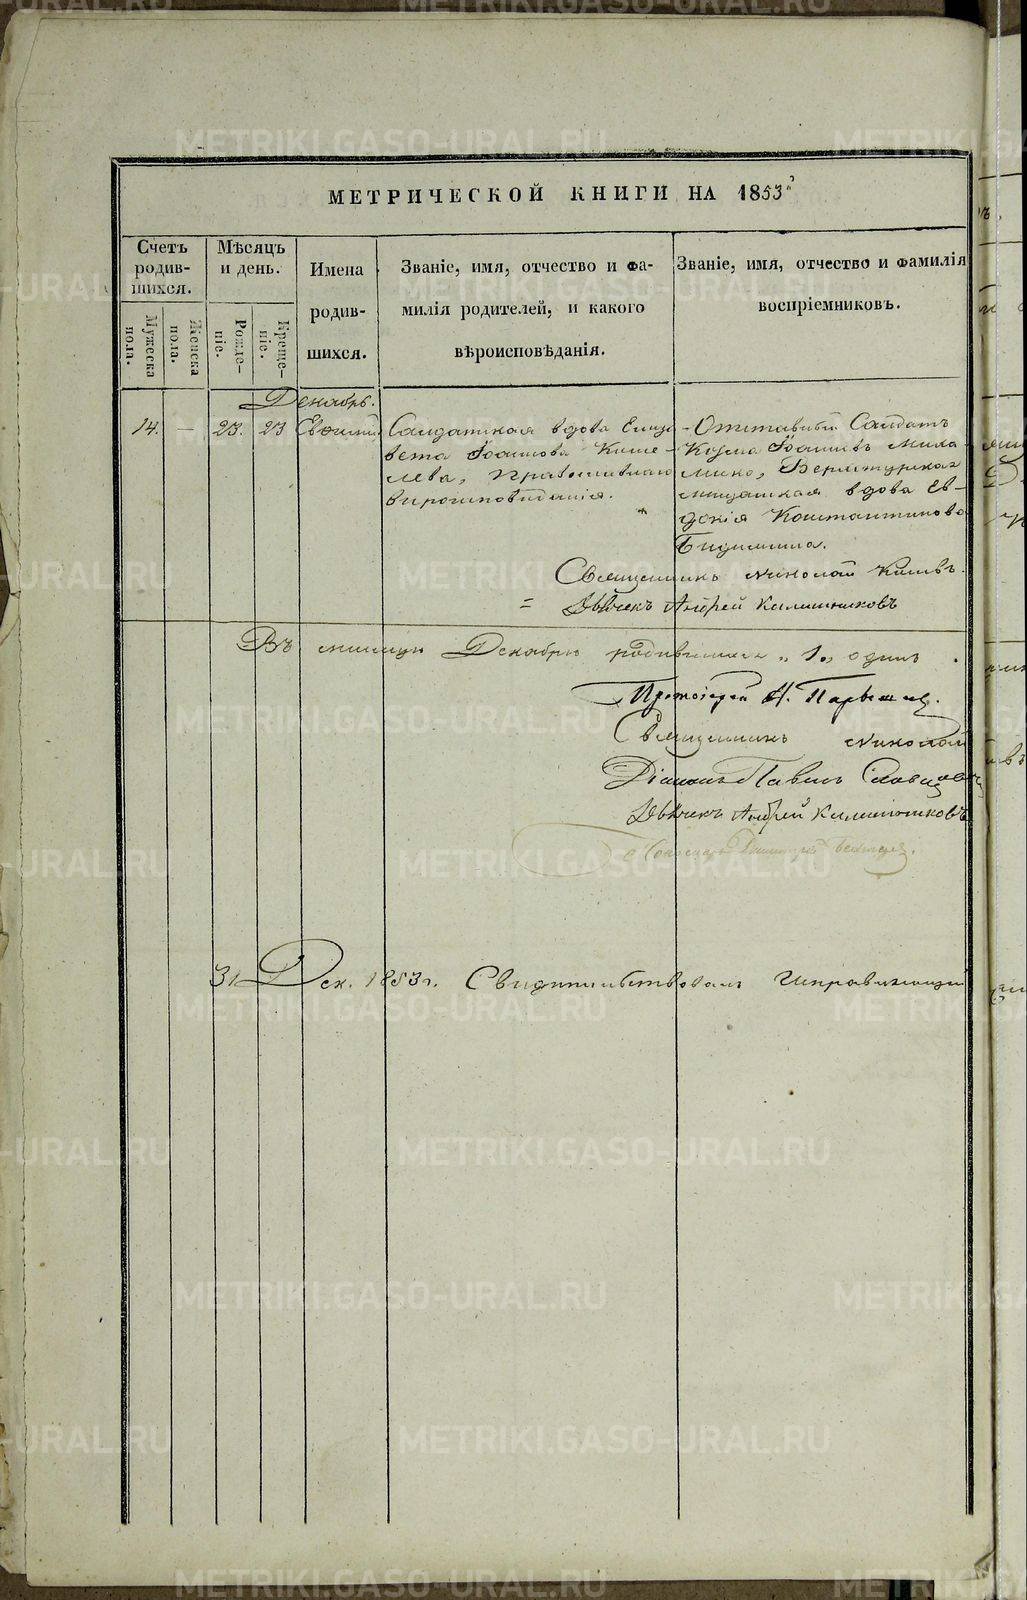 МЕТРИЧЕСКОЙ КНИГИ НА 1853
Счетъ родив-шихся.
Мужеска пола.
Женска пола.
Мѣсяцъ и день.
Рожде-ніе.
Креще-ніе.
Имена родив-шихся.
Званіе, имя, отчество и фа-
милія родителей, и какого
вѣроисповѣданія.
Званіе, имя, отчество и фамилія
воспріемниковъ.
Декабрь.
14. — 23. 23 Евѳимій
Салдатская вдова Елиза-
вета Іоаннова Кише-
лева, Православнаго
вѣроисповѣданія.
Отставный Салдатъ
Козма Іоанновъ
Верхотурская
мѣщанская вдова Ев-
докія Константинова
Священникъ Николай
Дьячекъ Андрей Калашниковъ
Въ мѣсяцѣ Декабрѣ родившихся „1„ одинъ.
Протоіерей
Священникъ Николай
Діаконъ Павелъ Словцовъ
Дьячекъ Андрей Калашниковъ
Пономарь
31 Дек. 1853 г. Свидѣтельствовалъ Исправляющій
METRIKI.GASO-URAL.RU